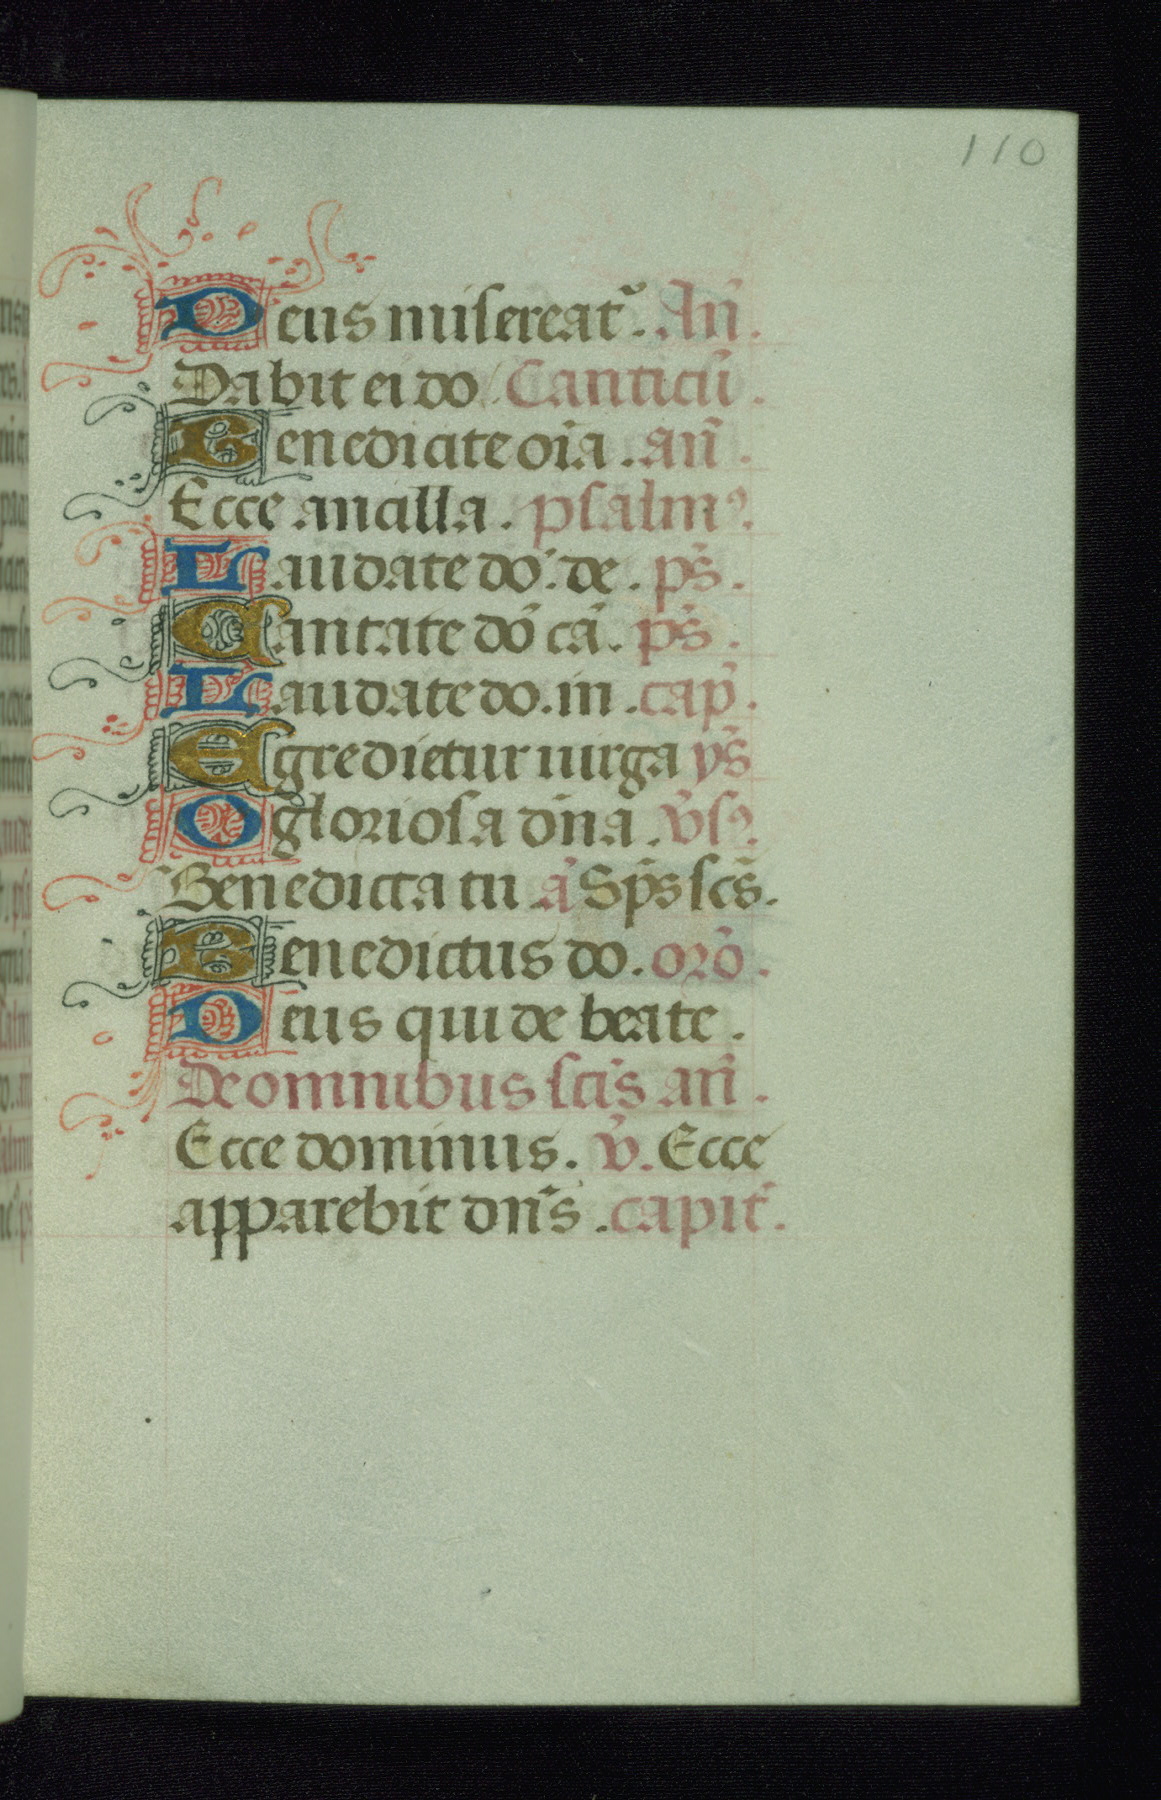 110
Deus misereat᷑. An̄.
Dabit ei do. Canticū.
Benedicite oīa. an̄.
Ecce ancilla. psalmꝰ.
Laudate do᷑. de. ps̄.
Cantate dō cā. ps̄.
Laudate do. in. cap̄.
Egredietur uirga ys̄
O gloriosa dn̄a. v̄sꝰ.
Benedicta tu. ā Sp̄s sc̄s.
Benedictus do. orō.
Deus qui de beate.
De omnibus sc̄is an̄.
Ecce dominus. v̄. Ecce
apparebit dn̄s. capit᷑.